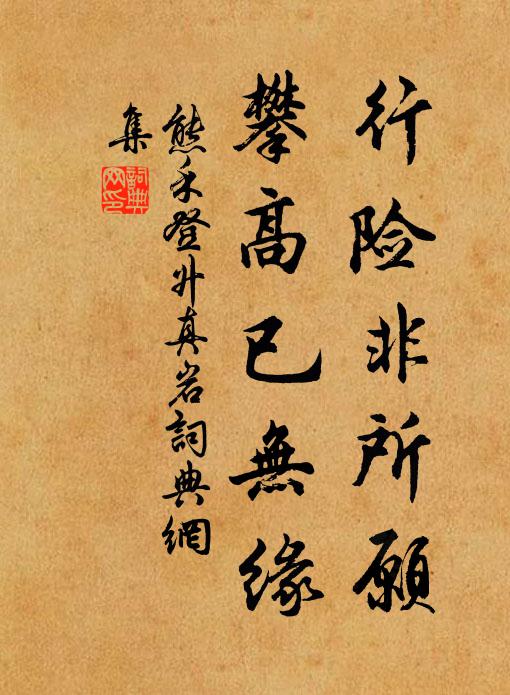 行险非所愿
攀高已無缘
熊禾登升真岩詞典網
集
詞典網印